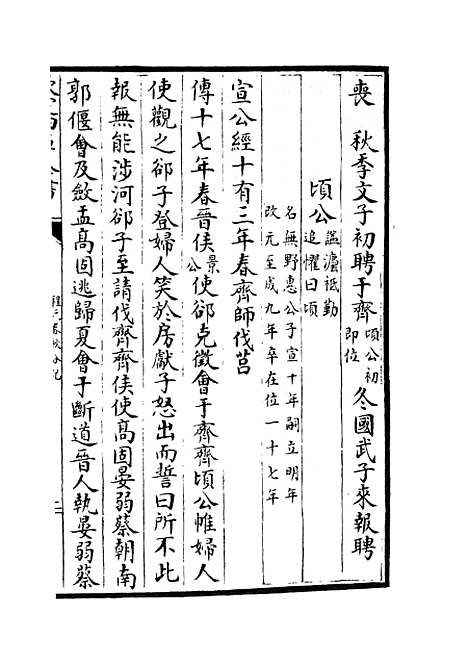 喪　秋季文子初聘于齊頃公初即位冬國武子來報聘
頃公諡灋祗勤追懼曰頃
名無野惠公子宣十年嗣立明年
改元至成九年卒在位一十七年
宣公經十有三年春齊師伐莒
傳十七年春晉侯景公使郤克徵會于齊齊頃公帷婦人
使觀之郤子登婦人笑於房獻子怒出而誓曰所不此
報無能涉河郤子至請伐齊齊侯使高固晏弱蔡朝南
郭偃會及斂盂高固逃歸夏會于斷道晉人執晏弱蔡